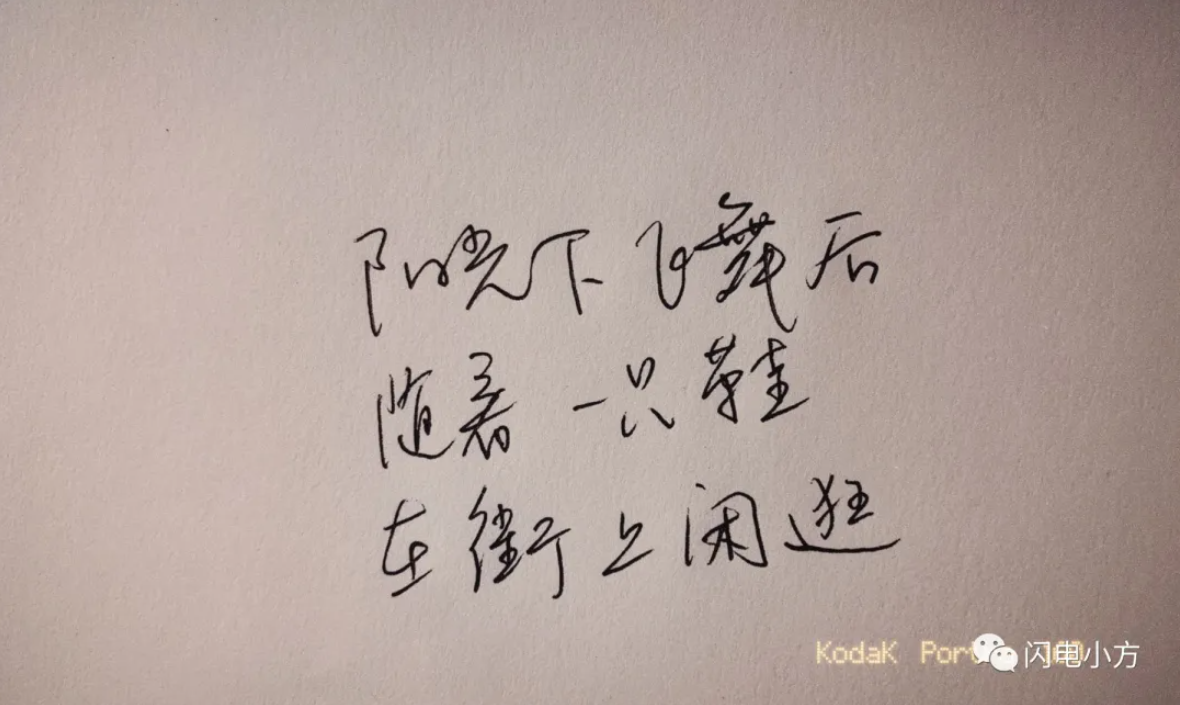 阳光下飞舞后
随着一只鞋
在街上闲逛
Kodak Por
闪电小方